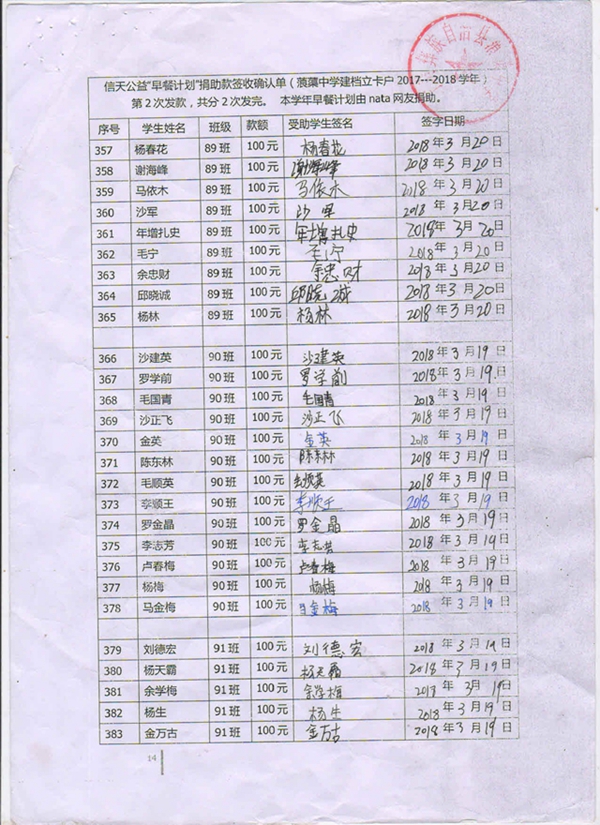 信天公益“早餐计划”捐助款签收确认单（蒗蕖中学建档立卡户2017---2018学年）
第2次发款，共分2次发完。 本学年早餐计划由nata网友捐助。
序号 学生姓名 班级 款额 受助学生签名 签字日期
357 杨春花 89班 100元 杨春花 2018年3月20日
358 谢海峰 89班 100元 谢海峰 2018年3月20日
359 马依木 89班 100元 马依木 2018年3月20日
360 沙军 89班 100元 沙军 2018年3月20日
361 年增扎史 89班 100元 年增扎史 2018年3月20日
362 毛宁 89班 100元 毛宁 2018年3月20日
363 余忠财 89班 100元 余忠财 2018年3月20日
364 邱晓诚 89班 100元 邱晓诚 2018年3月20日
365 杨林 89班 100元 杨林 2018年3月20日
366 沙建英 90班 100元 沙建英 2018年3月19日
367 罗学前 90班 100元 罗学前 2018年3月19日
368 毛国青 90班 100元 毛国青 2018年3月19日
369 沙正飞 90班 100元 沙正飞 2018年3月19日
370 金英 90班 100元 金英 2018年3月19日
371 陈东林 90班 100元 陈东林 2018年3月19日
372 毛顺英 90班 100元 毛顺英 2018年3月19日
373 李顺王 90班 100元 李顺王 2018年3月19日
374 罗金晶 90班 100元 罗金晶 2018年3月19日
375 李志芳 90班 100元 李志芳 2018年3月19日
376 卢春梅 90班 100元 卢春梅 2018年3月19日
377 杨梅 90班 100元 杨梅 2018年3月19日
378 马金梅 90班 100元 马金梅 2018年3月19日
379 刘德宏 91班 100元 刘德宏 2018年3月19日
380 杨天霸 91班 100元 杨天霸 2018年3月19日
381 余学梅 91班 100元 余学梅 2018年3月19日
382 杨生 91班 100元 杨生 2018年3月19日
383 金万古 91班 100元 金万古 2018年3月19日
14